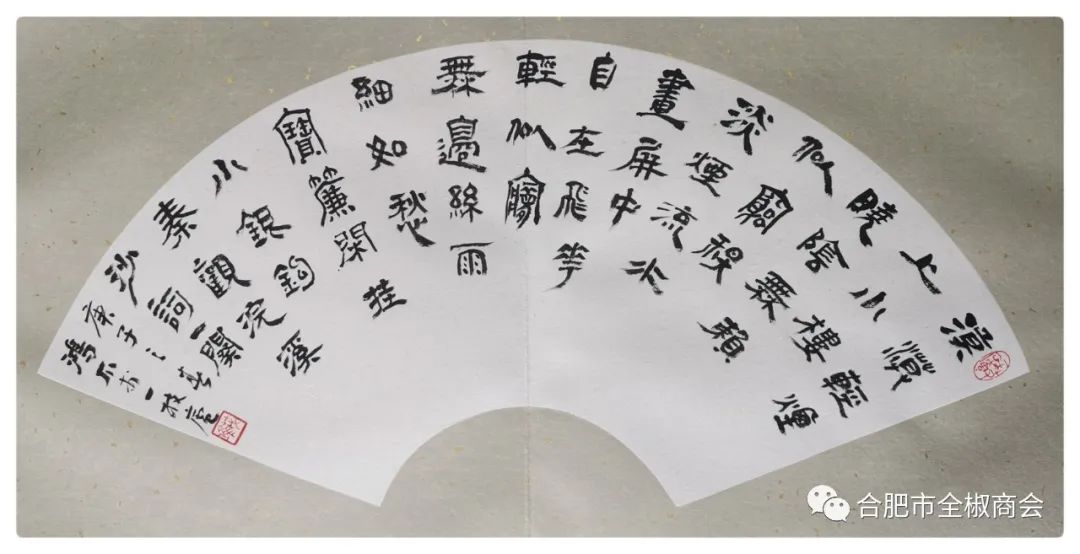 漠漠輕寒
上小樓
曉陰無賴
似窮秋
淡煙流水
畫屏中
自在飛華
輕似夢
無邊絲雨
細如愁
寶簾閑挂
小銀鈎
秦觀浣溪
沙詞一闋
庚子之春
鴻 於一枝庵
合肥市全椒商会